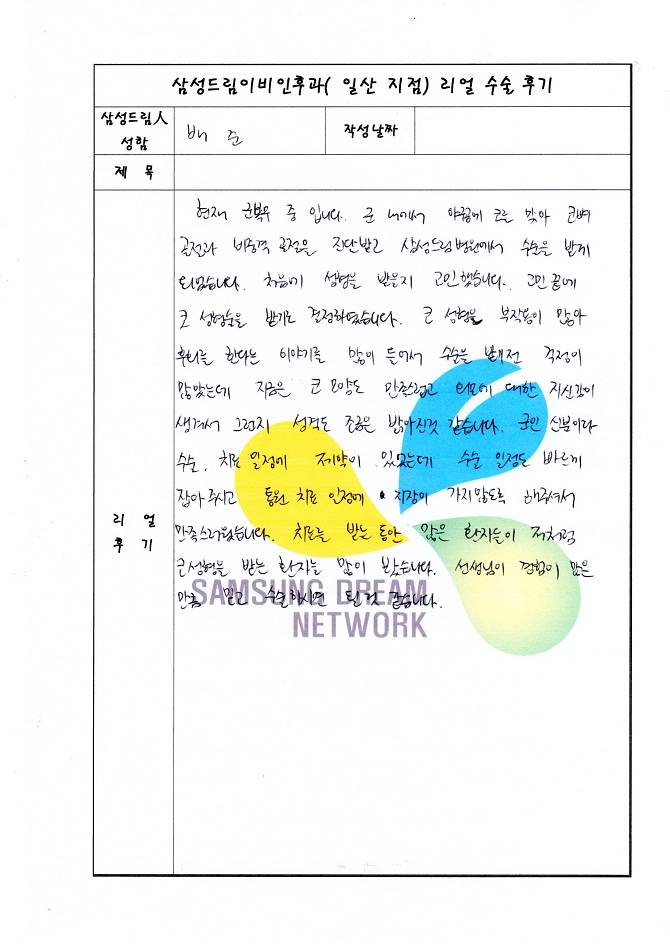 삼성드림이비인후과( 일산 지점) 리얼 수술 후기
삼성드림人
성함
배 준
작성날짜
제 목
리 얼
후 기
현재 군복무 중 입니다. 군 내에서 야구공에 코를 맞아 코뼈
골절과 비중격 골절을 진단받고 삼성드림병원에서 수술을 받게
되었습니다. 처음에 성형을 받을지 고민했습니다. 고민 끝에
코 성형술을 받기로 결정하였습니다. 코 성형을 부작용이 많아
후회를 한다는 이야기를 많이 들어서 수술을 받기전 걱정이
많았는데 지금은 코 모양도 만족스럽고 외모에 대한 자신감이
생겨서 그런지 성격도 조금은 밝아진것 같습니다. 군인 신분이라
수술, 치료 일정에 제약이 있었는데 수술 일정도 빠르게
잡아 주시고 통원 치료 일정에 지장이 가지않도록 해주셔서
만족스러웠습니다. 치료를 받는 동안 많은 환자들이 저처럼
코성형을 받는 환자를 많이 봤습니다. 선생님이 경험이 많은
만큼 믿고 수술하시면 될것 같습니다.
SAMSUNG DREAM
NETWORK